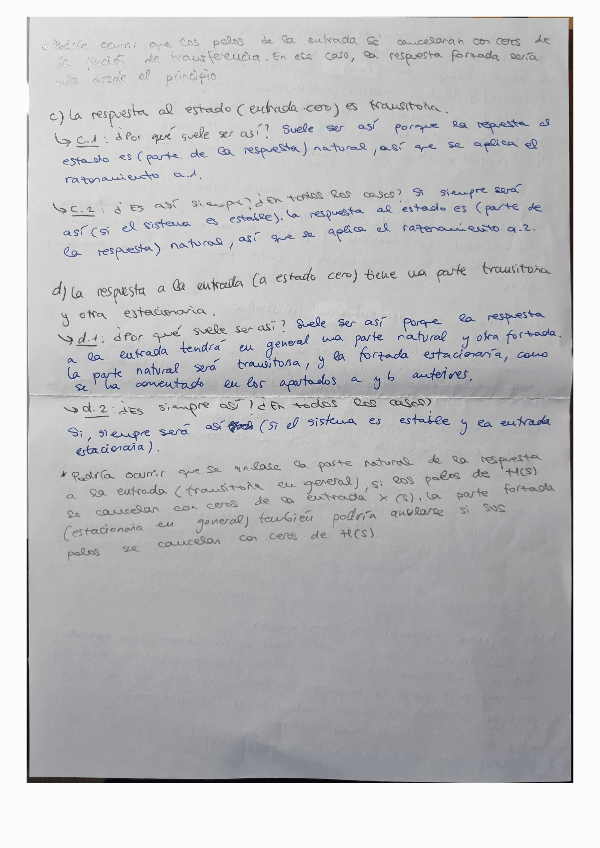 Podría ocurrir que los polos de la entrada se cancelaran con ceros de
la función de transferencia. En ese caso, la respuesta forzada sería
nula desde el principio
c) La respuesta al estado (entrada cero) es transitoria.
↳ c.1: ¿Por qué suele ser así? Suele ser así porque la repuesta al
estado es (parte de la respuesta) natural, así que se aplica el
razonamiento a.1.
↳ c.2: ¿Es así siempre? ¿En todos los casos? Si siempre será
así (si el sistema es estable). La respuesta al estado es (parte de
la respuesta) natural, así que se aplica el razonamiento a.2.
d) La respuesta a la entrada (a estado cero) tiene una parte transitoria
y otra estacionaria.
↳ d.1: ¿Por qué suele ser así? Suele ser así porque la respuesta
a la entrada tendrá en general una parte natural y otra forzada.
La parte natural será transitoria, y la forzada estacionaria, como
se ha comentado en los apartados a y b anteriores.
↳ d.2: ¿Es siempre así? ¿En todos los casos?
Si, siempre será así (si el sistema es estable y la entrada
estacionaria).
* Podría ocurrir que se anulase la parte natural de la respuesta
a la entrada (transitoria en general), si los polos de H(s)
se cancelan con ceros de la entrada X(s). La parte forzada
(estacionaria en general) también podría anularse si sus
polos se cancelan con ceros de H(s)